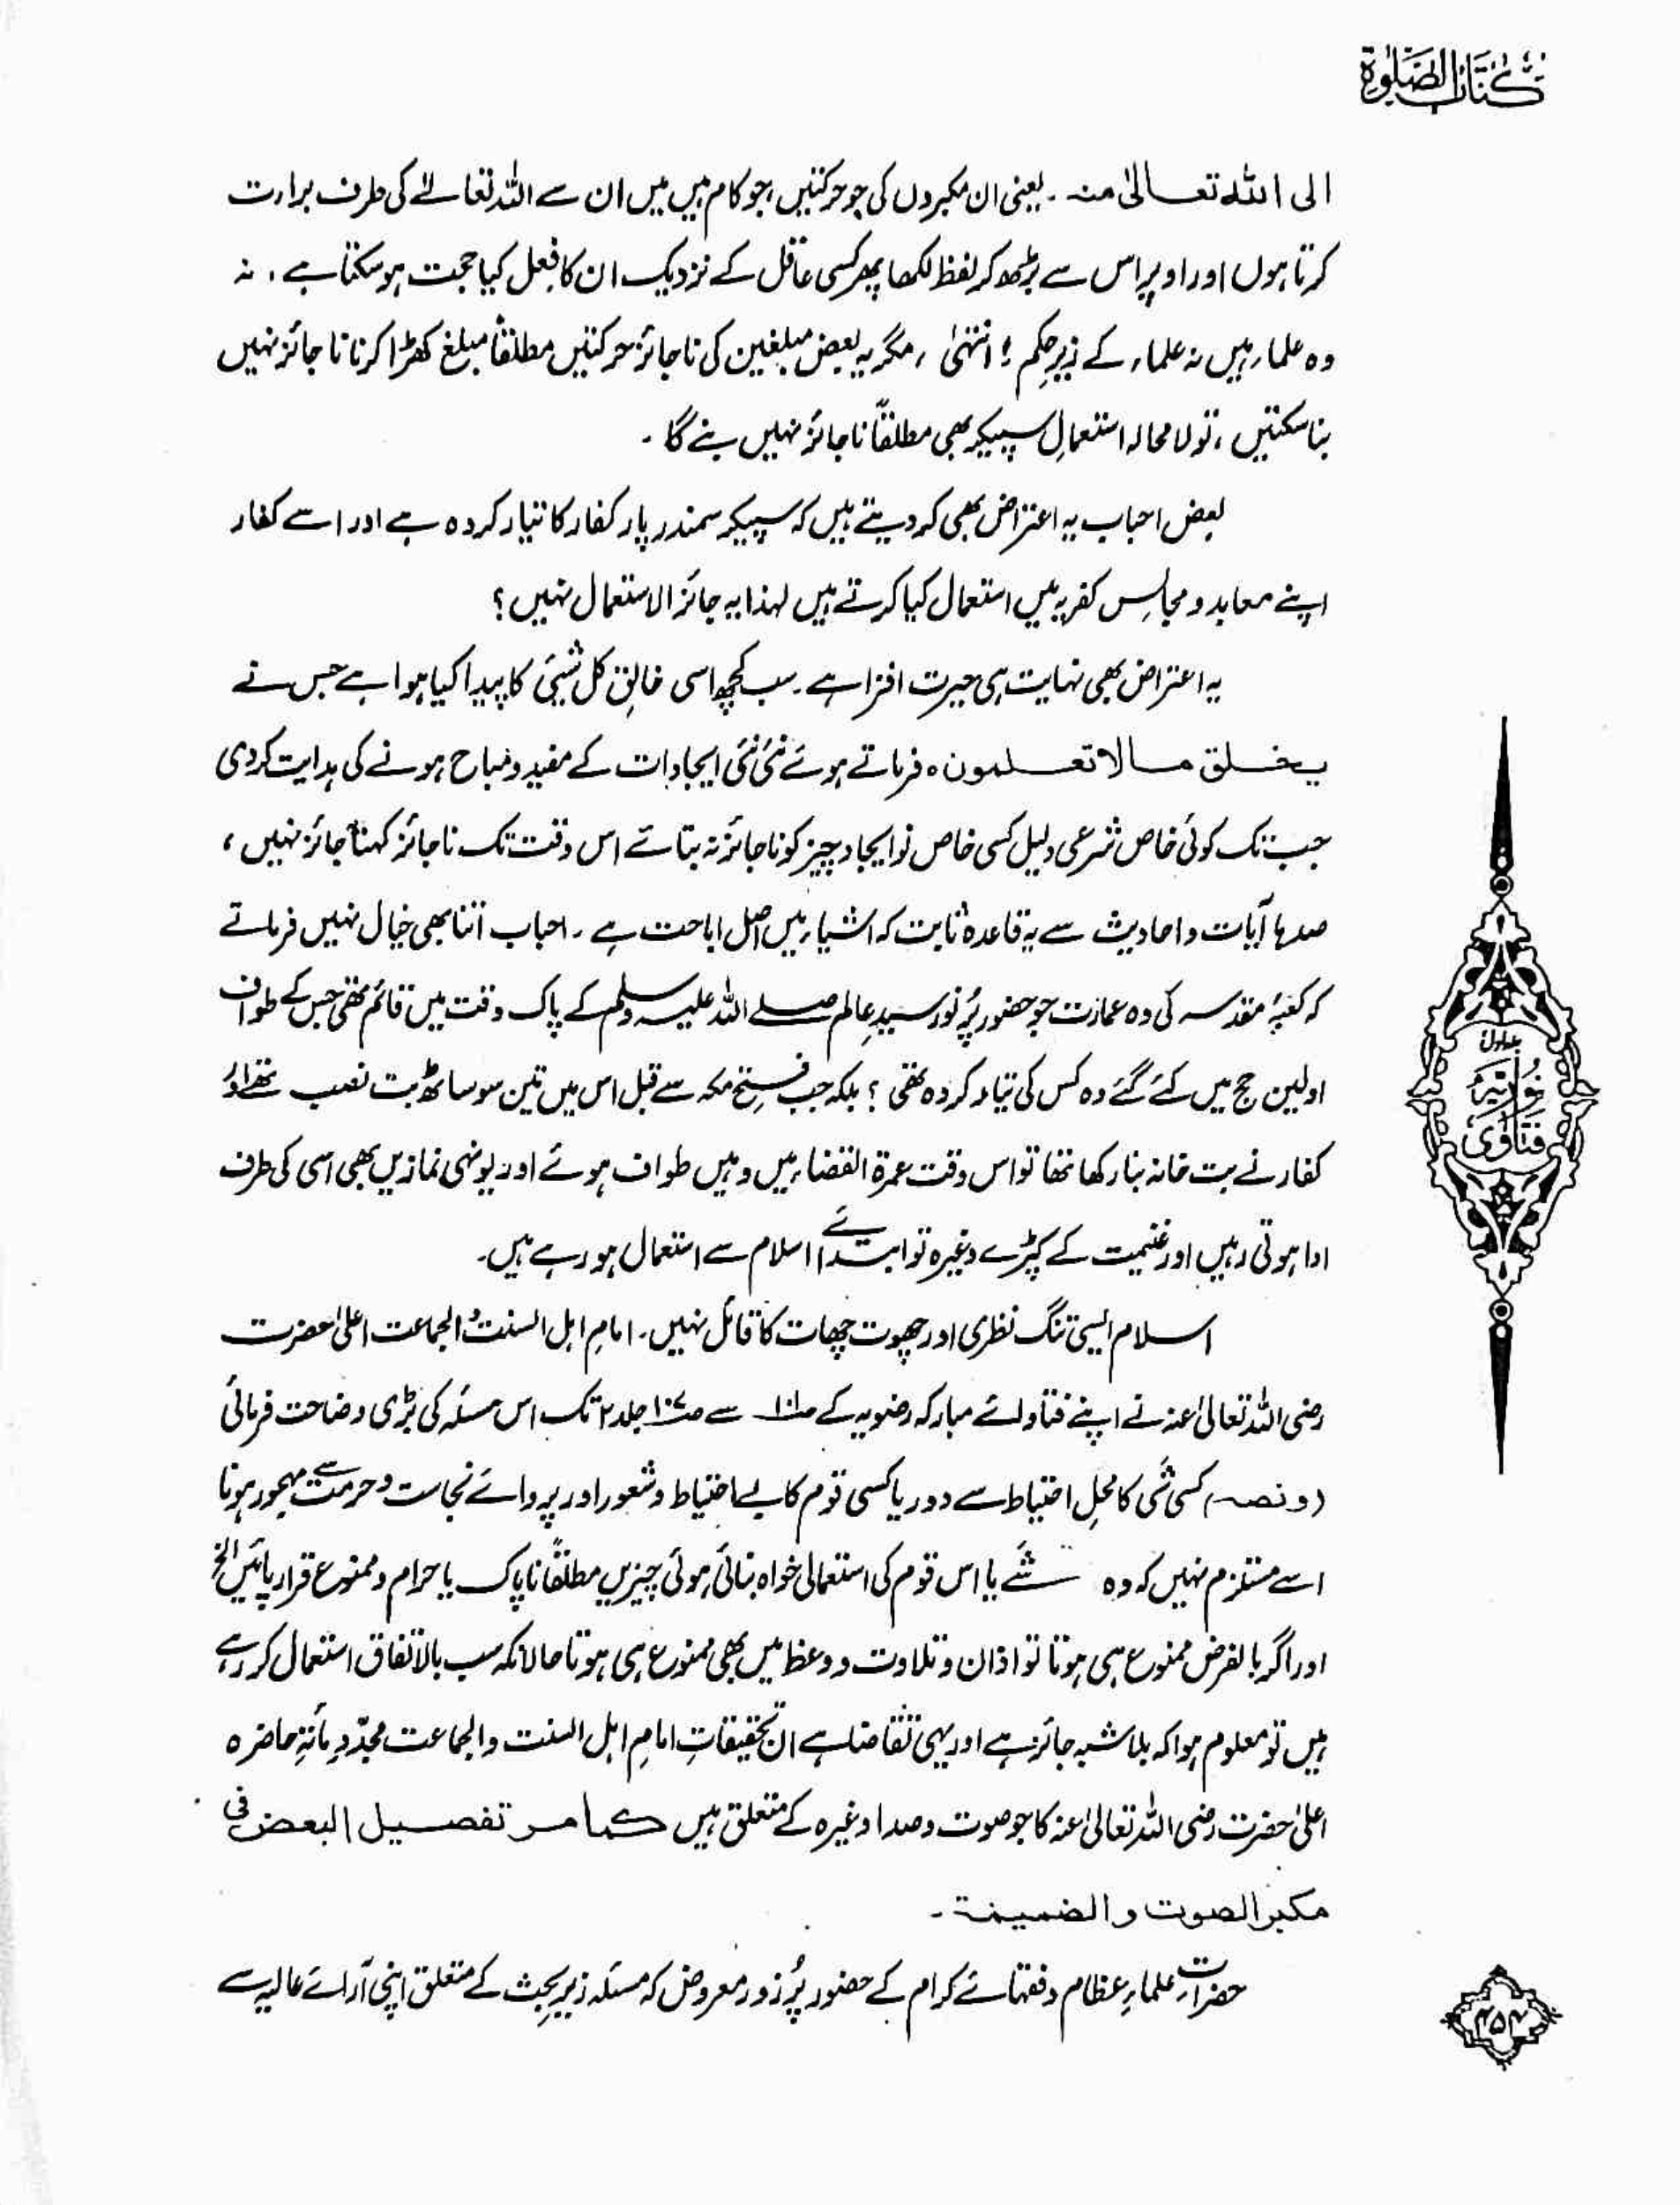 کتاب الصلوٰۃ
الی اللہ تعالیٰ منہ ۔ یعنی ان مکبروں کی جو حرکتیں، جو کام ہیں میں ان سے اللہ تعالےٰ کی طرف براءت
کرتا ہوں اور اوپر اس سے بڑھ کر لفظ لکھا پھر کسی عاقل کے نزدیک ان کا فعل کیا حجت ہو سکتا ہے ، نہ
وہ علماء ہیں نہ علماء کے زیرِ حکم ؛ انتہیٰ ، مگر یہ بعض مبلغین کی ناجائز حرکتیں مطلقاً مبلغ کھڑا کرنا ناجائز نہیں
بنا سکتیں ، تو لا محالہ استعمالِ سپیکر بھی مطلقاً ناجائز نہیں بنے گا ۔
بعض احباب یہ اعتراض بھی کر دیتے ہیں کہ سپیکر سمندر پار کفار کا تیار کردہ ہے اور اسے کفار
اپنے معابد و مجالس کفریہ میں استعمال کیا کرتے ہیں لہذا یہ جائز الاستعمال نہیں ؟
یہ اعتراض بھی نہایت ہی حیرت افزا ہے ۔ سب کچھ اسی خالِق کل شیئ کا پیدا کیا ہوا ہے جس نے
یخلق مالا تعلمون ہ فرماتے ہوئے نئی نئی ایجادات کے مفید و مباح ہونے کی ہدایت کر دی
جب تک کوئی خاص شرعی دلیل کسی خاص نو ایجاد چیز کو ناجائز نہ بتائے اس وقت تک ناجائز کہنا جائز نہیں ،
صدہا آیات و احادیث سے یہ قاعدہ ثابت کہ اشیاء میں اصل اباحت ہے ۔ احباب اتنا بھی خیال نہیں فرماتے
کہ کعبۂ مقدسہ کی وہ عمارت جو حضور پُر نور سیدِ عالم صلے اللہ علیہ وسلم کے پاک وقت میں قائم تھی جس کے طواف
اولین حج میں کئے گئے وہ کس کی تیار کردہ تھی ؟ بلکہ جب فتحِ مکہ سے قبل اس میں تین سو ساٹھ بت نصب تھے اور
کفار نے بت خانہ بنا رکھا تھا تو اس وقت عمرۃ القضاء میں وہیں طواف ہوئے اور یونہی نمازیں بھی اسی کی طرف
ادا ہوتی رہیں اور غنیمت کے کپڑے وغیرہ تو ابتدائے اسلام سے استعمال ہو رہے ہیں۔
اسلام ایسی تنگ نظری اور چھوت چھات کا قائل نہیں ۔ امامِ اہل السنت والجماعت اعلیٰ حضرت
رضی اللہ تعالیٰ عنہ نے اپنے فتاوٰئے مبارکہ رضویہ کے ص۱۰۱ سے ص۱۰۷ جلد ۲ تک اس مسئلہ کی بڑی وضاحت فرمائی
(ونصہ) کسی شَی کا محلِ احتیاط سے دور یا کسی قوم کا بے احتیاط و شعور اور پروائے نجاست و حرمت سے مہجور ہونا
اسے مستلزم نہیں کہ وہ شَے یا اس قوم کی استعمالی خواہ بنائی ہوئی چیزیں مطلقاً ناپاک یا حرام و ممنوع قرار پائیں الخ
اور اگر بالفرض ممنوع ہی ہوتا تو اذان و تلاوت و وعظ میں بھی ممنوع ہی ہوتا حالانکہ سب بالاتفاق استعمال کر رہے
ہیں تو معلوم ہوا کہ بلاشبہ جائز ہے اور یہی تقاضا ہے ان تحقیقاتِ امامِ اہل السنت والجماعت مجدّدِ مأتہِ حاضرہ
اعلیٰ حضرت رضی اللہ تعالیٰ عنہ کا جو صوت و صدا وغیرہ کے متعلق ہیں کما مر تفصیل البعض فی
مکبر الصوت والضمیمۃ ۔
حضراتِ علماءِ عظام و فقہائے کرام کے حضور پُر زور معروض کہ مسئلہ زیرِ بحث کے متعلق اپنی آرائے عالیہ سے
جلد اول
فتاوٰی نوریہ
۴۵۴